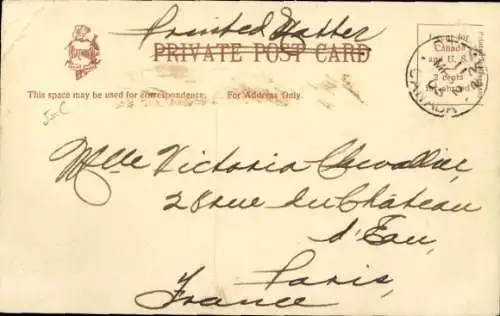 Printed Matter
PRIVATE POST CARD
This space may be used for correspondence.
For Address Only.
for
Canada
and U.S.
2 cents
CANADA
Mlle Victoria Chevallier
28 rue du Château
d'Eau,
Paris,
France